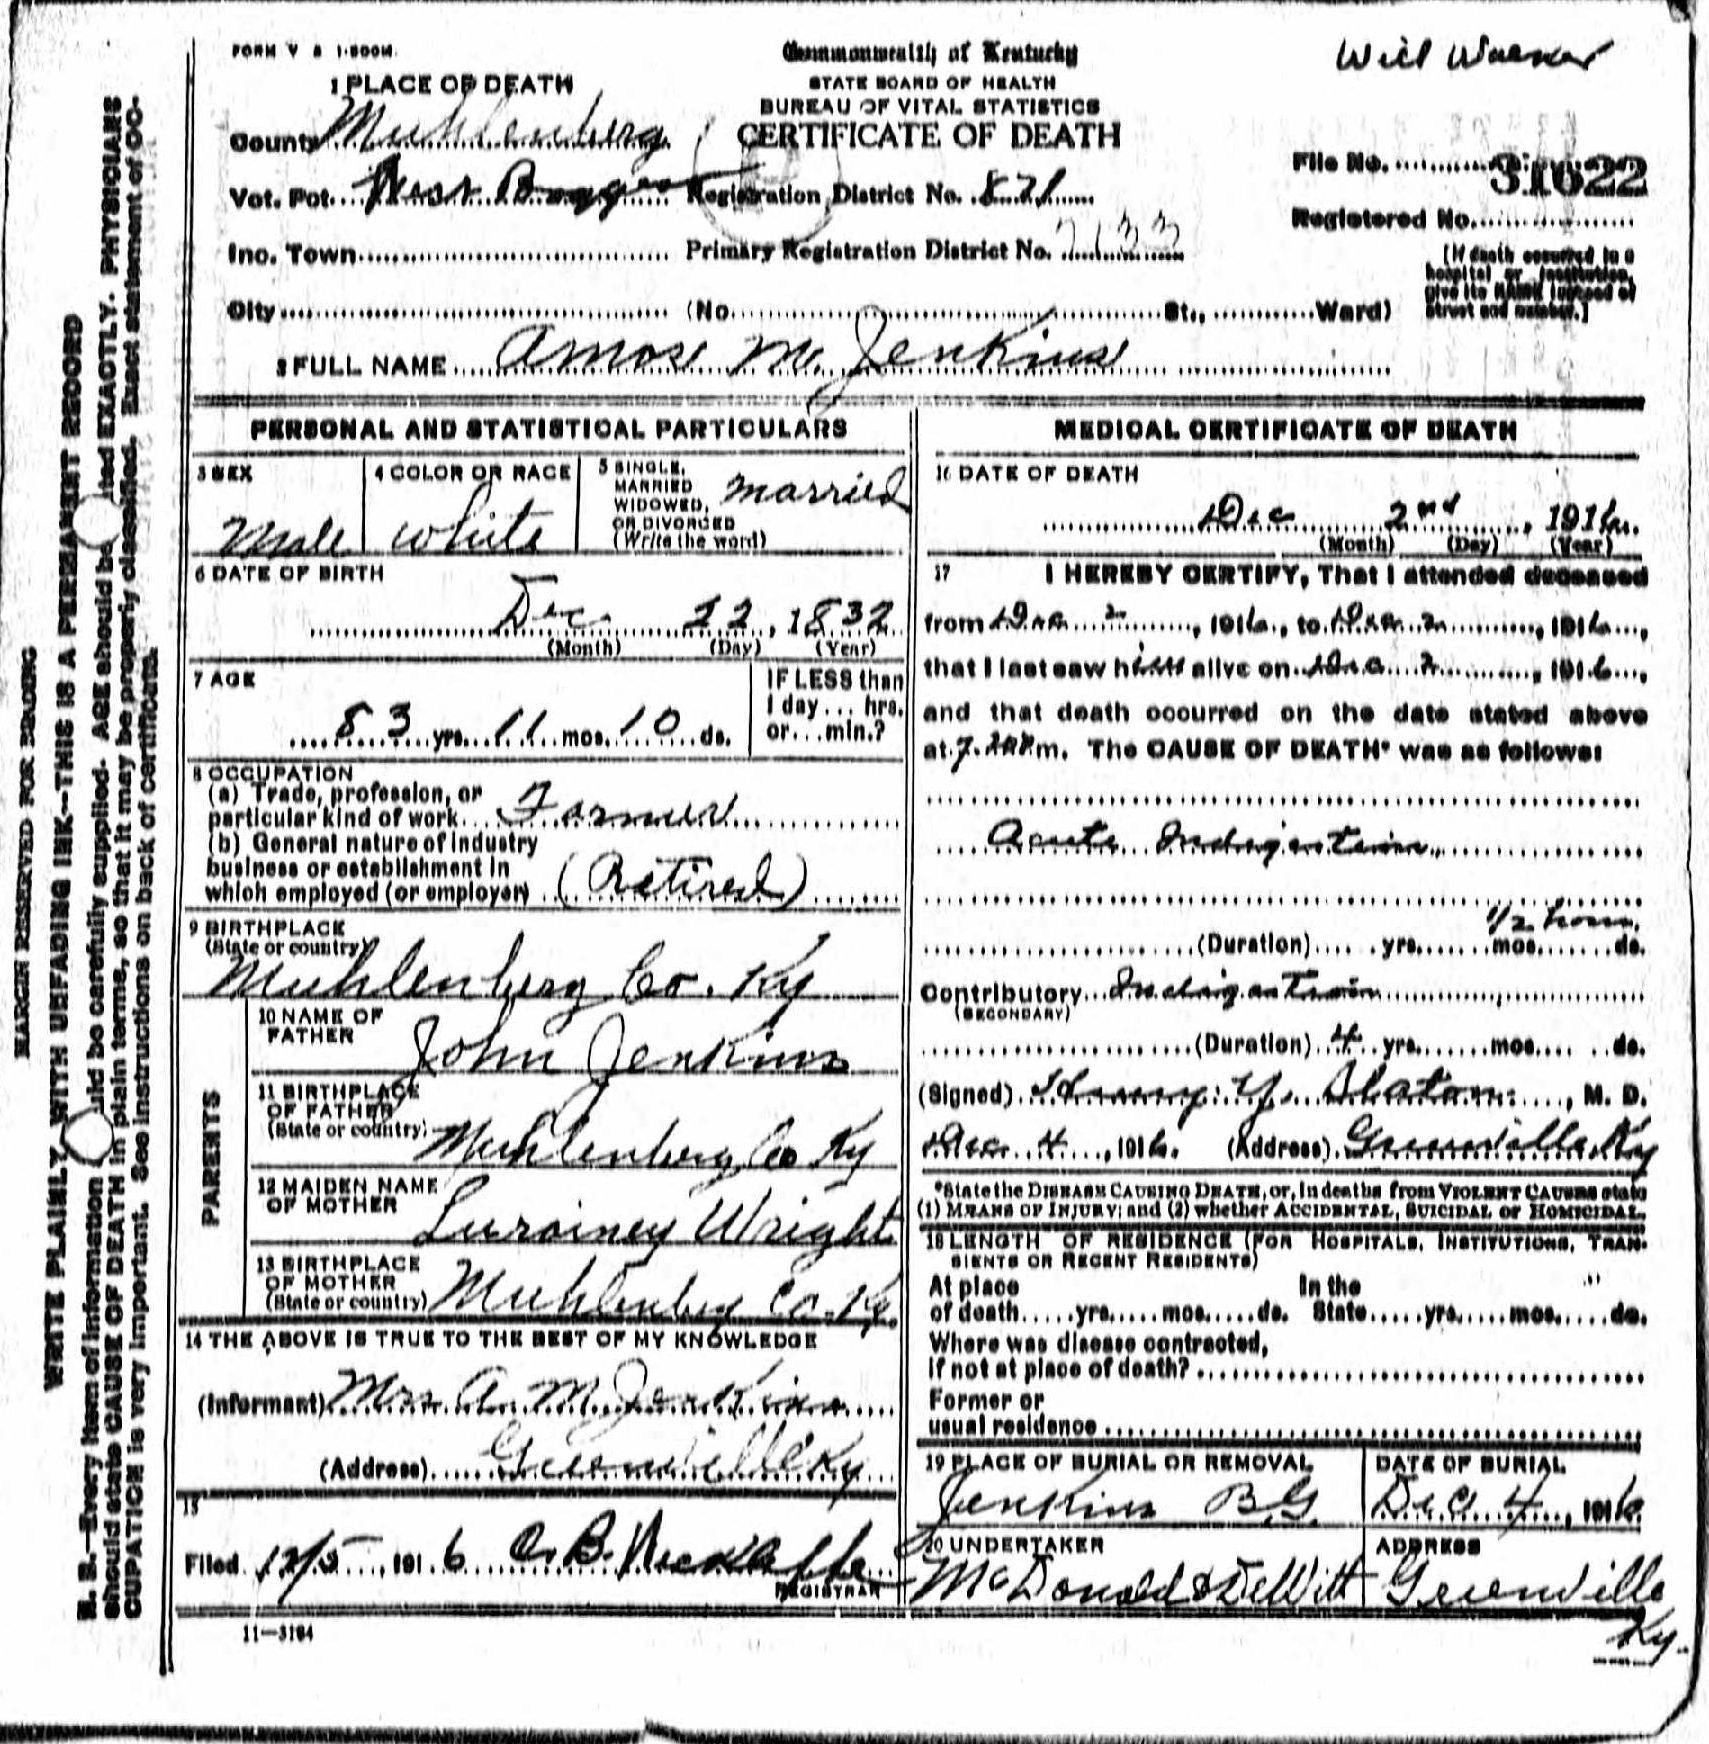 FORM V S 1-500M.
Commonwealth of Kentucky
STATE BOARD OF HEALTH
BUREAU OF VITAL STATISTICS
CERTIFICATE OF DEATH
Will
1 PLACE OF DEATH
County Muhlenberg
Vot. Pct. West Registration District No. 871
Inc. Town Primary Registration District No. 7133
City (No. St., Ward)
File No. 31622
Registered No.
[If death occurred in a
hospital or institution,
give its NAME instead of
street and number.]
2 FULL NAME Amose M. Jenkins
PERSONAL AND STATISTICAL PARTICULARS
3 SEX
Male
4 COLOR OR RACE
White
5 SINGLE,
MARRIED
WIDOWED,
OR DIVORCED
(Write the word)
married
6 DATE OF BIRTH
Dec 22, 1832
(Month) (Day) (Year)
7 AGE
83 yrs. 11 mos. 10 ds.
IF LESS than
1 day... hrs.
or...min.?
8 OCCUPATION
(a) Trade, profession, or
particular kind of work Farmer
(b) General nature of industry
business or establishment in
which employed (or employer) (Retired)
9 BIRTHPLACE
(State or country)
Muhlenberg Co. Ky
PARENTS
10 NAME OF
FATHER
John Jenkins
11 BIRTHPLACE
OF FATHER
(State or country)
Muhlenberg Co Ky
12 MAIDEN NAME
OF MOTHER
Lurainey Wright
13 BIRTHPLACE
OF MOTHER
(State or country)
Muhlenberg Co. Ky.
14 THE ABOVE IS TRUE TO THE BEST OF MY KNOWLEDGE
(Informant) Mrs A. M. Jenkins
(Address) Greenville Ky
15
Filed 12/5, 1916 C. B.
REGISTRAR
11—3184
MEDICAL CERTIFICATE OF DEATH
16 DATE OF DEATH
Dec 2nd, 1916
(Month) (Day) (Year)
17 I HEREBY CERTIFY, That I attended deceased
from Dec 2, 1916, to Dec 2, 1916,
that I last saw him alive on Dec 2, 1916,
and that death occurred on the date stated above
at 7. m. The CAUSE OF DEATH* was as follows:
Acute Indigestion
1/2 hour.
(Duration) yrs. mos. ds.
Contributory Indigestion
(SECONDARY)
(Duration) 4 yrs. mos. ds.
(Signed) Henry Y. Slaton, M. D.
Dec 4, 1916. (Address) Greenville, Ky
*State the DISEASE CAUSING DEATH, or, in deaths from VIOLENT CAUSES state
(1) MEANS OF INJURY; and (2) whether ACCIDENTAL, SUICIDAL or HOMICIDAL.
18 LENGTH OF RESIDENCE (FOR HOSPITALS, INSTITUTIONS, TRAN-
SIENTS OR RECENT RESIDENTS)
At place In the
of death yrs. mos. ds. State yrs. mos. ds.
Where was disease contracted,
if not at place of death?
Former or
usual residence
19 PLACE OF BURIAL OR REMOVAL
Jenkins B.G.
DATE OF BURIAL
Dec 4, 1916
20 UNDERTAKER
McDonald & DeWitt
ADDRESS
Greenville
Ky.
MARGIN RESERVED FOR BINDING
WRITE PLAINLY, WITH UNFADING INK--THIS IS A PERMANENT RECORD
N. B.—Every item of information should be carefully supplied. AGE should be stated EXACTLY. PHYSICIANS
should state CAUSE OF DEATH in plain terms, so that it may be properly classified. Exact statement of OC-
CUPATION is very important. See instructions on back of certificate.